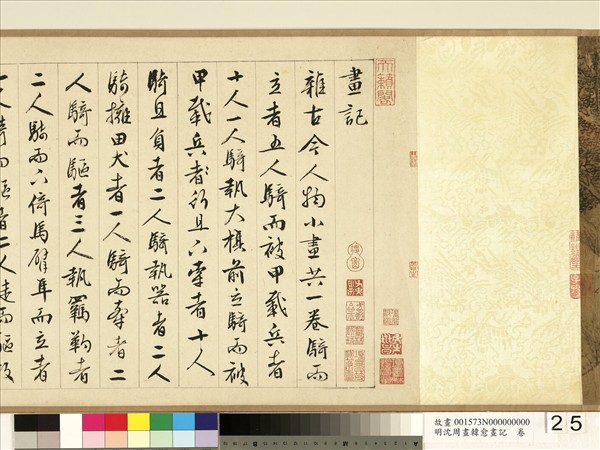 天籟閣
畫記
雜古今人物小畫共一卷騎而
立者五人騎而被甲載兵者
十人一人騎執大旗前立騎而被
甲載兵者行且下牽者十人
騎且負者二人騎執器者二人
騎擁田犬者一人騎而牽者二
人騎而驅者三人執羈靮者
二人騎而下倚馬臂隼而立者
一人騎而驅者二人徒而驅牧
故畫 001573N000000000
明沈周畫韓愈畫記 卷
25